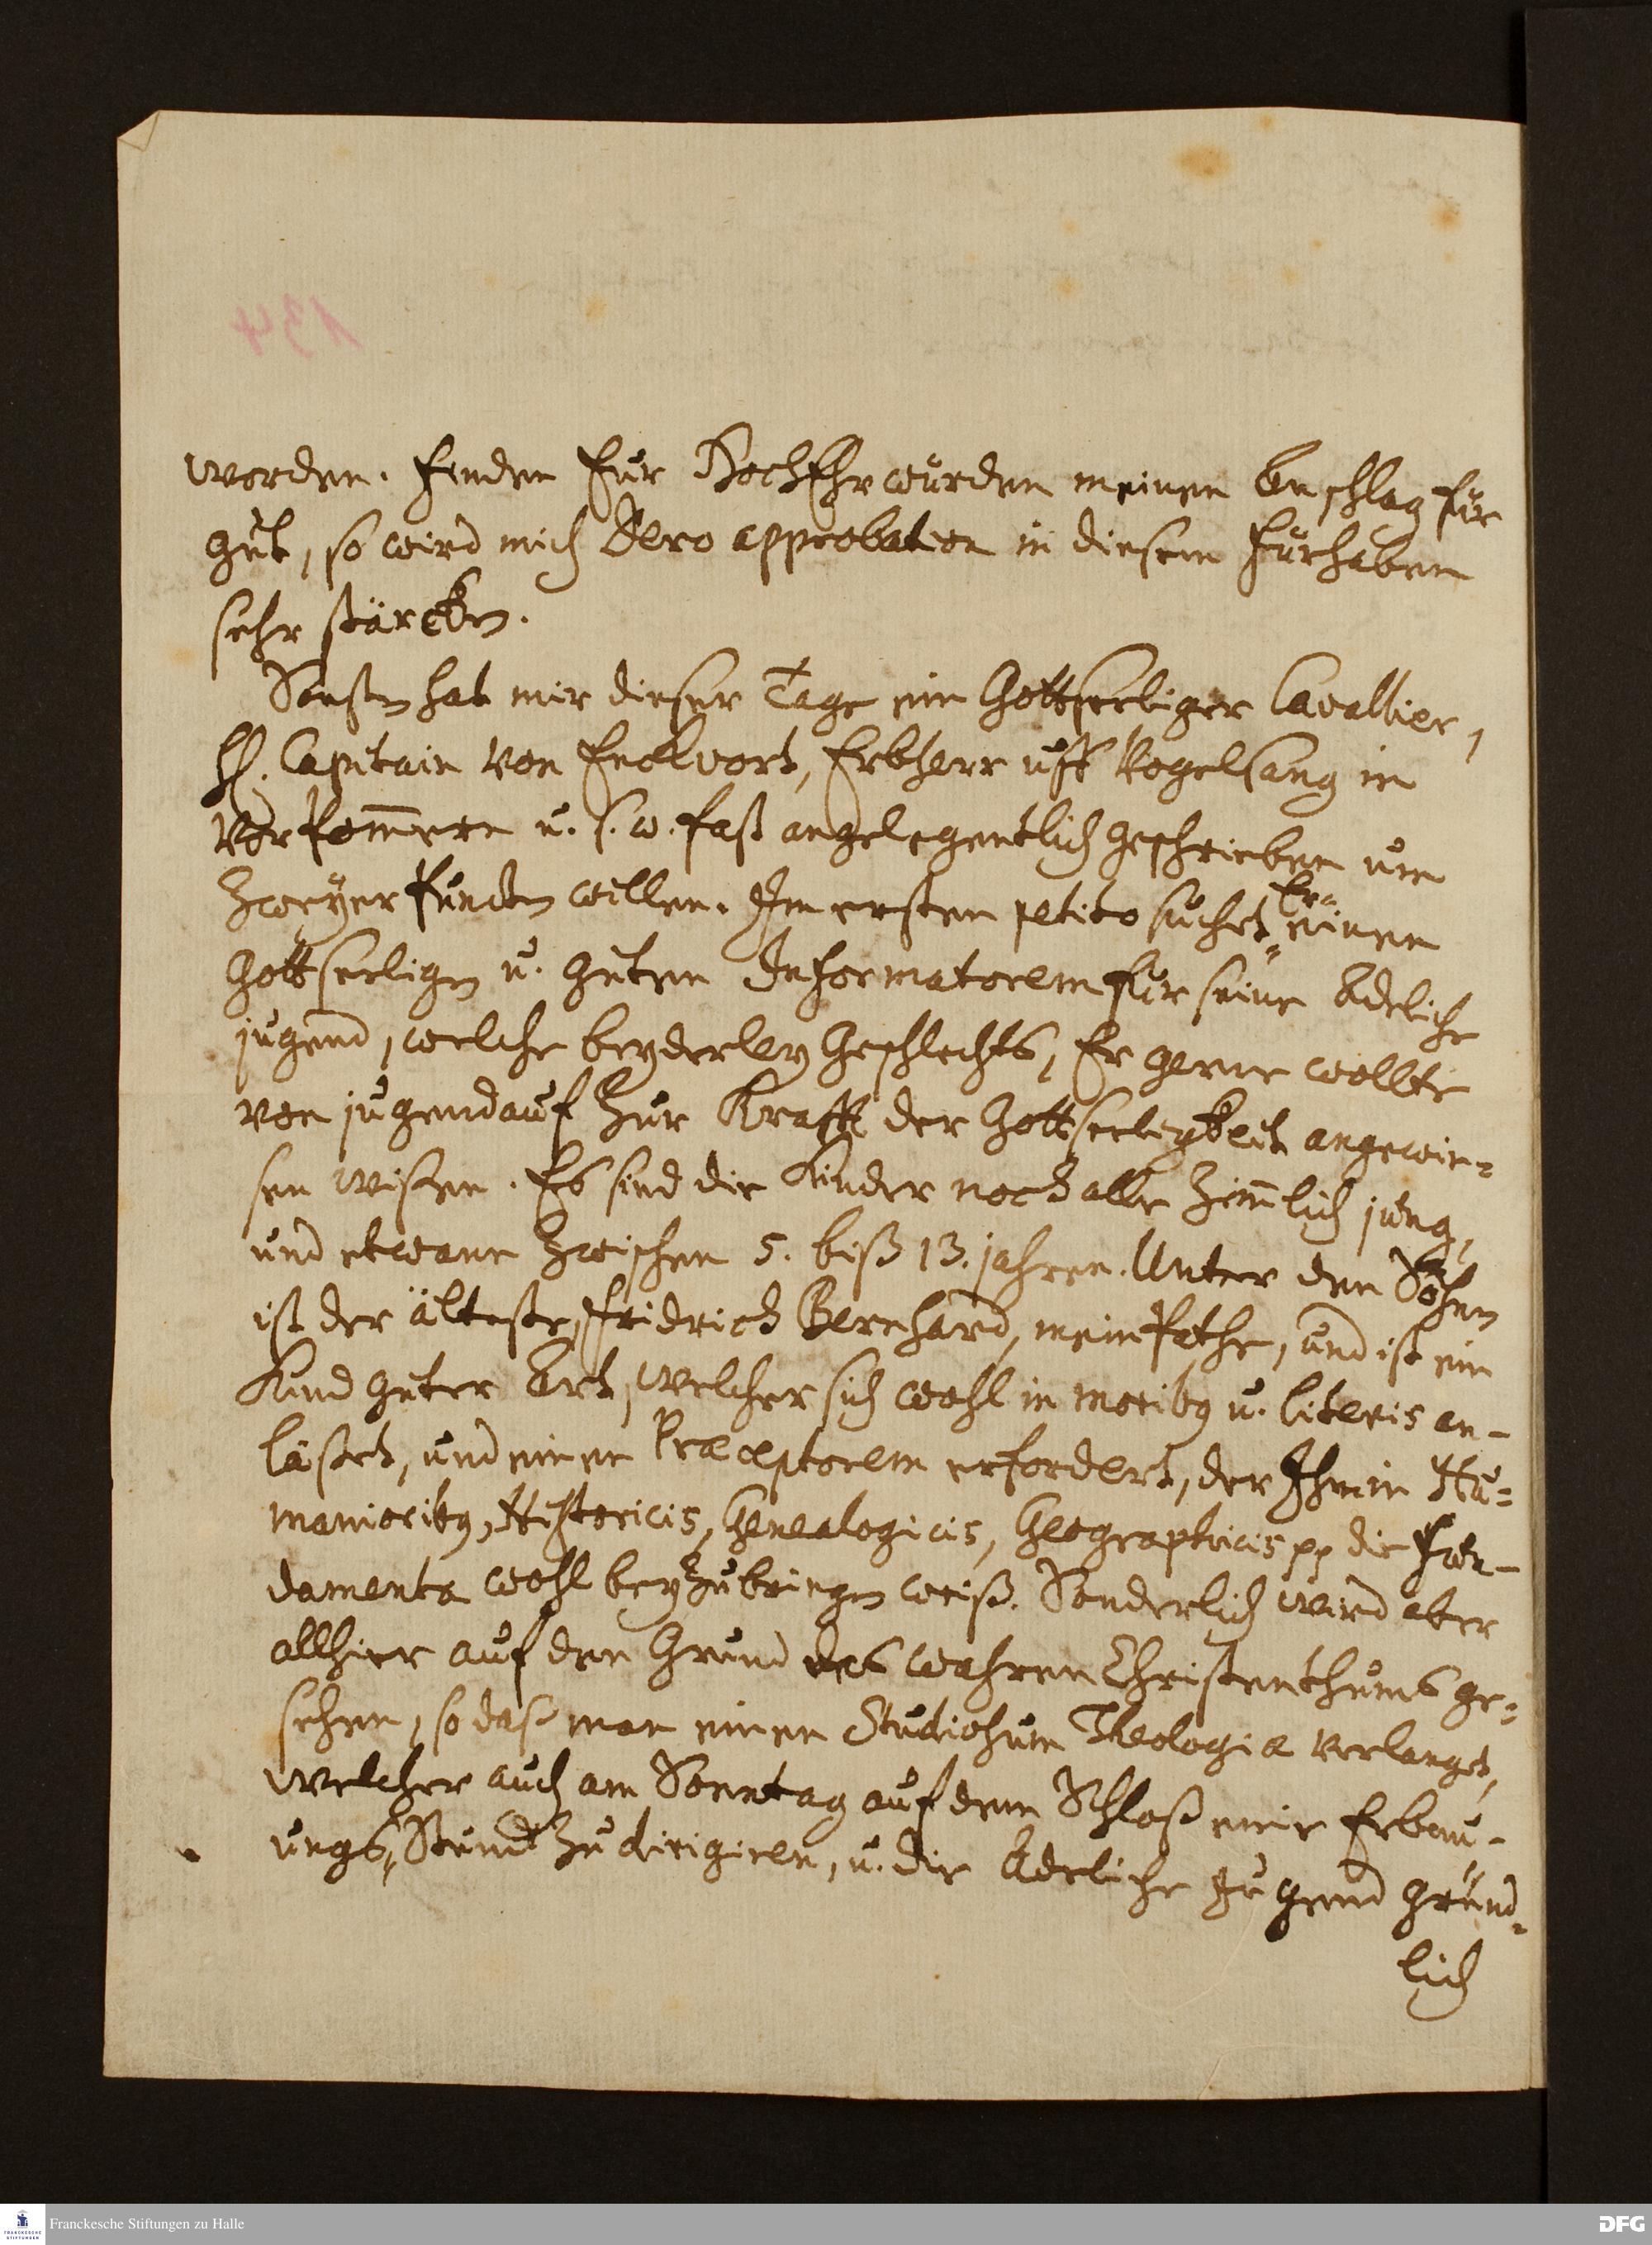 134
worden. Finden Eur HochEhrwürden meinen Anschlag für
gut, so wird mich Dero approbation in diesem Fürhaben
sehr stärcken.
Sonsten hat mir dieser Tage ein Gottseeliger Cavallier,
H. Capitain von Enckvort, Erbherr uff Vogelsang in
Vor Pom̄ern u. s. w. fast angelegentlich geschrieben um
zweyer Puncten willen. Im ersten petito suchet Er einen
Gottseeligen u. guten Informatorem für seine Adeliche
jugend, welche beyderley Geschlechts, Er gerne wollte
von jugend auf zur Krafft der Gottseeligkeit angewie-
sen wißen. Es sind die Kinder noch alle zim̄lich jung,
und etwann zwischen 5. biß 13. jahren. Unter den Söhnen
ist der älteste, Fridrich Bernhard, mein Pathe, und ist ein
Kind guter Art, welcher sich wohl in moribus u. literis an-
läßet, und einen Præceptorem erfordert, der Ihm in Hu-
manioribus, Historicis, Genealogicis, Geographicis pp die Fun-
damenta wohl beyzubringen weiß. Sonderlich wird aber
allhier auf den Grund des wahren Christenthums ge-
sehen, so daß man einen Studiosum Theologiæ verlanget,
welcher auch am Sonntag auf dem Schloß eine Erbau-
ungs-Stund zu dirigiren, u. die Adeliche Jugend gründ-
lich
Franckesche Stiftungen zu Halle
DFG